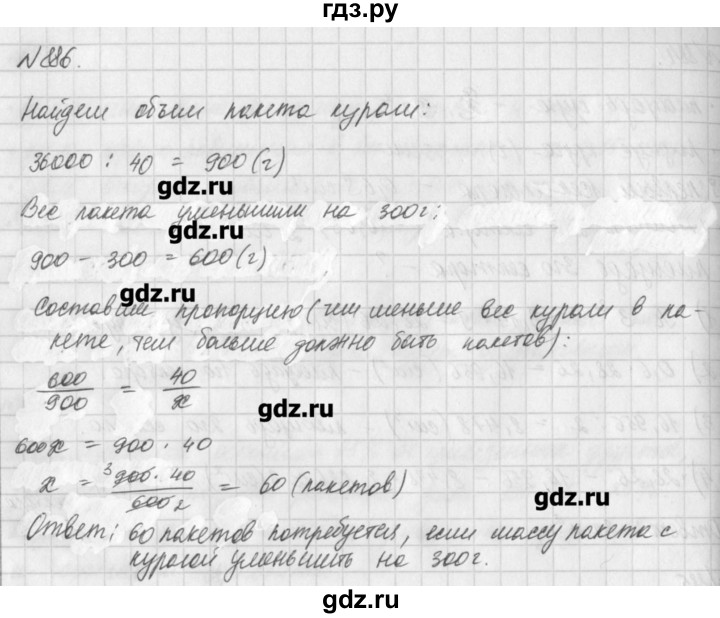 гдз.ру
N886.
Найдем объем пакета кураги:
36000 : 40 = 900 (г)
gdz.ru
Вес пакета уменьшили на 300г:
gdz.ru
900 - 300 = 600 (г)
gdz.ru
Составим пропорцию (чем меньше вес кураги в па-
кете, тем больше должно быть пакетов):
600/900 = 40/x
gdz.ru
600x = 900 · 40
x = 3 900 · 40 / 600 2 = 60 (пакетов)
gdz.ru
Ответ: 60 пакетов потребуется, если массу пакета с
курагой уменьшить на 300г.
gdz.ru